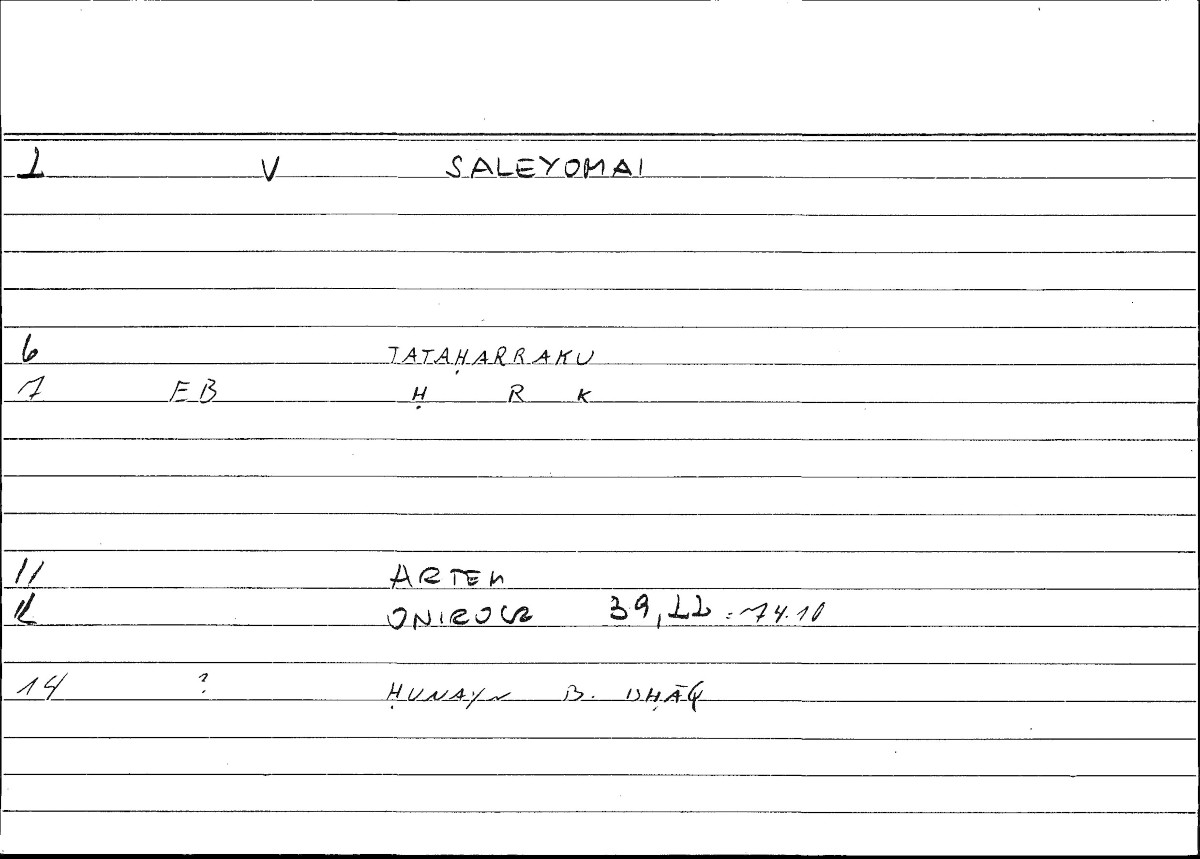 1 V SALEYOMAI
6 TATAḤARRAKU
7 EB Ḥ R K
11 ARTEM
12 ONIROCR 39,22 : 74.10
14 ? ḤUNAYN B. ISḤĀQ